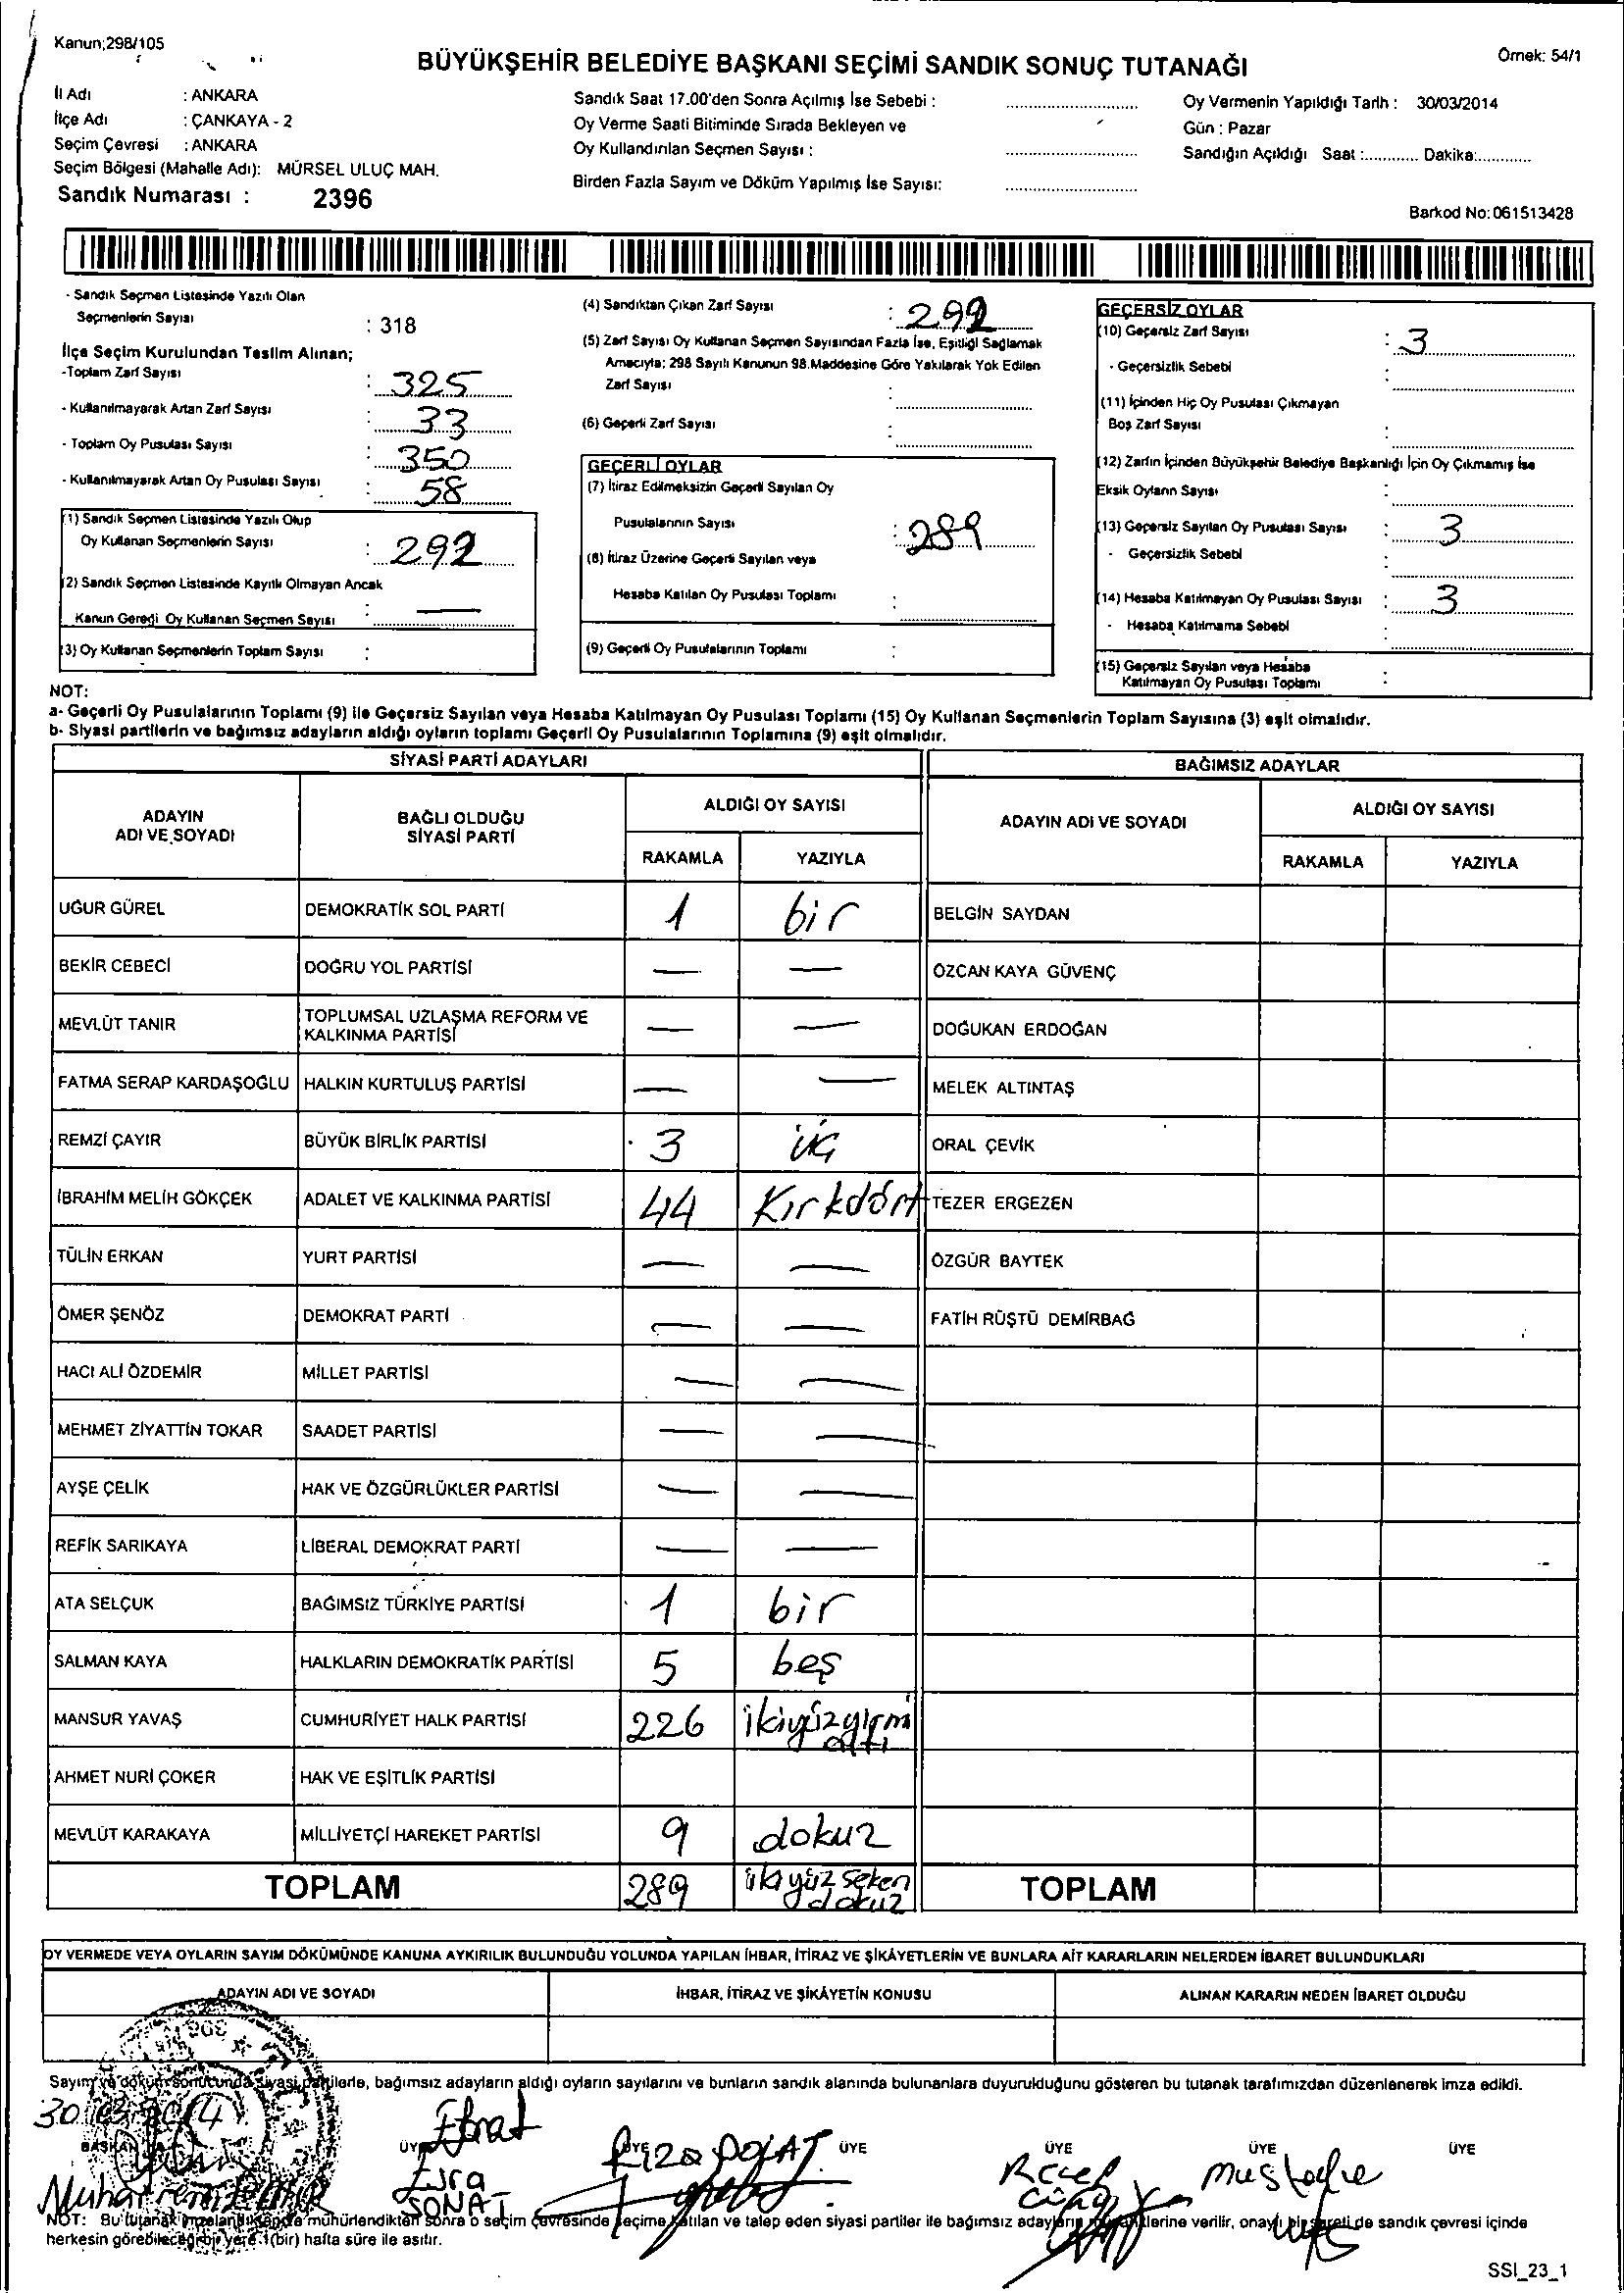 Kanun;298/105
Örnek: 54/1
BÜYÜKŞEHİR BELEDİYE BAŞKANI SEÇİMİ SANDIK SONUÇ TUTANAĞI
İl Adı : ANKARA
İlçe Adı : ÇANKAYA - 2
Seçim Çevresi : ANKARA
Seçim Bölgesi (Mahalle Adı): MÜRSEL ULUÇ MAH.
Sandık Numarası : 2396
Sandık Saat 17.00'den Sonra Açılmış İse Sebebi :
Oy Verme Saati Bitiminde Sırada Bekleyen ve
Oy Kullandırılan Seçmen Sayısı :
Birden Fazla Sayım ve Döküm Yapılmış İse Sayısı:
Oy Vermenin Yapıldığı Tarih : 30/03/2014
Gün : Pazar
Sandığın Açıldığı Saat :............ Dakika:............
Barkod No:061513428
- Sandık Seçmen Listesinde Yazılı Olan
Seçmenlerin Sayısı : 318
İlçe Seçim Kurulundan Teslim Alınan;
-Toplam Zarf Sayısı : 325
- Kullanılmayarak Artan Zarf Sayısı : 33
- Toplam Oy Pusulası Sayısı : 350
- Kullanılmayarak Artan Oy Pusulası Sayısı : 58
(1) Sandık Seçmen Listesinde Yazılı Olup
Oy Kullanan Seçmenlerin Sayısı : 292
(2) Sandık Seçmen Listesinde Kayıtlı Olmayan Ancak
Kanun Gereği Oy Kullanan Seçmen Sayısı : —
(3) Oy Kullanan Seçmenlerin Toplam Sayısı :
(4) Sandıktan Çıkan Zarf Sayısı : 292
(5) Zarf Sayısı Oy Kullanan Seçmen Sayısından Fazla İse, Eşitliği Sağlamak
Amacıyla; 298 Sayılı Kanunun 98.Maddesine Göre Yakılarak Yok Edilen
Zarf Sayısı :
(6) Geçerli Zarf Sayısı :
GEÇERLİ OYLAR
(7) İtiraz Edilmeksizin Geçerli Sayılan Oy
Pusulalarının Sayısı : 289
(8) İtiraz Üzerine Geçerli Sayılan veya
Hesaba Katılan Oy Pusulası Toplamı :
(9) Geçerli Oy Pusulalarının Toplamı :
GEÇERSİZ OYLAR
(10) Geçersiz Zarf Sayısı : 3
- Geçersizlik Sebebi :
(11) İçinden Hiç Oy Pusulası Çıkmayan
Boş Zarf Sayısı :
(12) Zarfın İçinden Büyükşehir Belediye Başkanlığı İçin Oy Çıkmamış İse
Eksik Oyların Sayısı :
(13) Geçersiz Sayılan Oy Pusulası Sayısı : 3
- Geçersizlik Sebebi :
(14) Hesaba Katılmayan Oy Pusulası Sayısı : 3
- Hesaba Katılmama Sebebi :
(15) Geçersiz Sayılan veya Hesaba
Katılmayan Oy Pusulası Toplamı :
NOT:
a- Geçerli Oy Pusulalarının Toplamı (9) ile Geçersiz Sayılan veya Hesaba Katılmayan Oy Pusulası Toplamı (15) Oy Kullanan Seçmenlerin Toplam Sayısına (3) eşit olmalıdır.
b- Siyasi partilerin ve bağımsız adayların aldığı oyların toplamı Geçerli Oy Pusulalarının Toplamına (9) eşit olmalıdır.
SİYASİ PARTİ ADAYLARI
BAĞIMSIZ ADAYLAR
ADAYIN ADI VE SOYADI
BAĞLI OLDUĞU SİYASİ PARTİ
ALDIĞI OY SAYISI
RAKAMLA YAZIYLA
ADAYIN ADI VE SOYADI
ALDIĞI OY SAYISI
RAKAMLA YAZIYLA
UĞUR GÜREL DEMOKRATİK SOL PARTİ 1 bir BELGİN SAYDAN
BEKİR CEBECİ DOĞRU YOL PARTİSİ — — ÖZCAN KAYA GÜVENÇ
MEVLÜT TANIR TOPLUMSAL UZLAŞMA REFORM VE KALKINMA PARTİSİ — — DOĞUKAN ERDOĞAN
FATMA SERAP KARDAŞOĞLU HALKIN KURTULUŞ PARTİSİ — — MELEK ALTINTAŞ
REMZİ ÇAYIR BÜYÜK BİRLİK PARTİSİ 3 üç ORAL ÇEVİK
İBRAHİM MELİH GÖKÇEK ADALET VE KALKINMA PARTİSİ 44 Kırkdört TEZER ERGEZEN
TÜLİN ERKAN YURT PARTİSİ — — ÖZGÜR BAYTEK
ÖMER ŞENÖZ DEMOKRAT PARTİ — — FATİH RÜŞTÜ DEMİRBAĞ
HACI ALİ ÖZDEMİR MİLLET PARTİSİ — —
MEHMET ZİYATTİN TOKAR SAADET PARTİSİ — —
AYŞE ÇELİK HAK VE ÖZGÜRLÜKLER PARTİSİ — —
REFİK SARIKAYA LİBERAL DEMOKRAT PARTİ — —
ATA SELÇUK BAĞIMSIZ TÜRKİYE PARTİSİ 1 bir
SALMAN KAYA HALKLARIN DEMOKRATİK PARTİSİ 5 beş
MANSUR YAVAŞ CUMHURİYET HALK PARTİSİ 226 ikiyüzyirmi altı
AHMET NURİ ÇOKER HAK VE EŞİTLİK PARTİSİ
MEVLÜT KARAKAYA MİLLİYETÇİ HAREKET PARTİSİ 9 dokuz
TOPLAM 289 ikiyüz seksen dokuz TOPLAM
OY VERMEDE VEYA OYLARIN SAYIM DÖKÜMÜNDE KANUNA AYKIRILIK BULUNDUĞU YOLUNDA YAPILAN İHBAR, İTİRAZ VE ŞİKÂYETLERİN VE BUNLARA AİT KARARLARIN NELERDEN İBARET BULUNDUKLARI
ADAYIN ADI VE SOYADI
İHBAR, İTİRAZ VE ŞİKÂYETİN KONUSU
ALINAN KARARIN NEDEN İBARET OLDUĞU
Sayım ve döküm sonucunda siyasi partilerle, bağımsız adayların aldığı oyların sayılarını ve bunların sandık alanında bulunanlara duyurulduğunu gösteren bu tutanak tarafımızdan düzenlenerek imza edildi.
30/03/2014
BAŞKAN ÜYE ÜYE ÜYE ÜYE ÜYE ÜYE
Muharrem
Esra SONAT
Rıza POLAT
Recep
Mustafa
NOT: Bu tutanak imzalandıktan ve mühürlendikten sonra o seçim çevresinde seçime katılan ve talep eden siyasi partiler ile bağımsız adayların müşahitlerine verilir, onaylı bir sureti de sandık çevresi içinde
herkesin görebileceği bir yere 1(bir) hafta süre ile asılır.
SSI_23_1